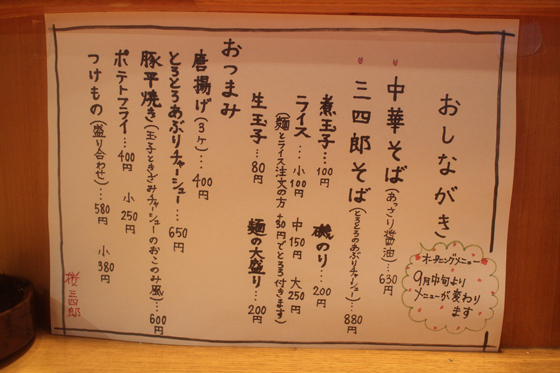 おしながき
オープニングメニュー
9月中旬より
メニューが変わり
ます
中華そば(あっさり醤油)…630円
三四郎そば(とろとろのあぶりチャーシュー)…880円
煮玉子…100円 磯のり…200円
ライス…小100円 中150円 大250円
(麺とライス注文の方 +30円でとろろ付きます)
生玉子…80円 麺の大盛り…200円
おつまみ
唐揚げ(3ヶ)…400円
とろとろあぶりチャーシュー…650円
豚平焼き(玉子ときざみチャーシューのおこのみ風)…600円
ポテトフライ…400円 小250円
つけもの(盛り合わせ)…580円 小380円
桜三四郎